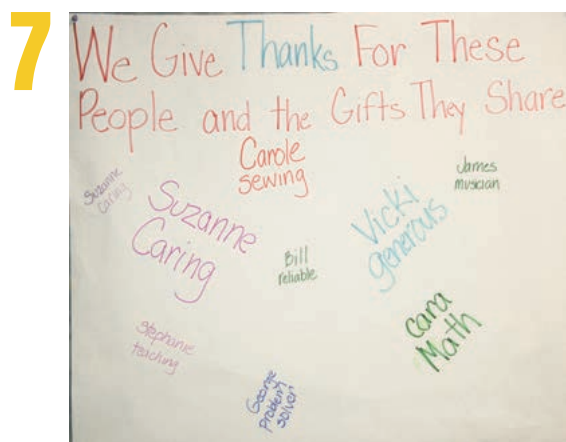 7
We Give Thanks For These
People and the Gifts They Share
Carole
sewing
James
musician
Suzanne
caring
Suzanne
Caring
Vicki
generous
Bill
reliable
Cara
Math
Stephanie
teaching
George
problem
solver